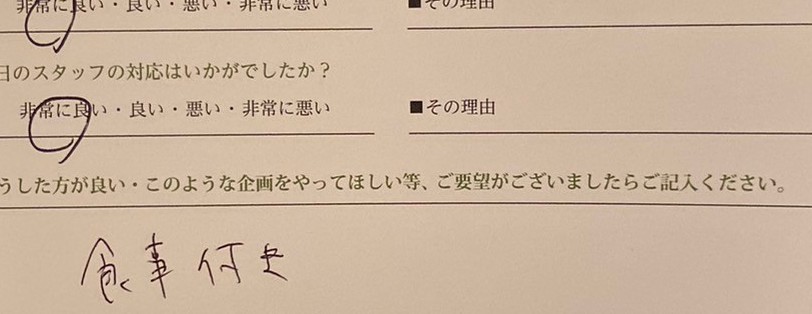 非常に良い・良い・悪い・非常に悪い
■その理由
日のスタッフの対応はいかがでしたか？
非常に良い・良い・悪い・非常に悪い
■その理由
うした方が良い・このような企画をやってほしい等、ご要望がございましたらご記入ください。
食事付き